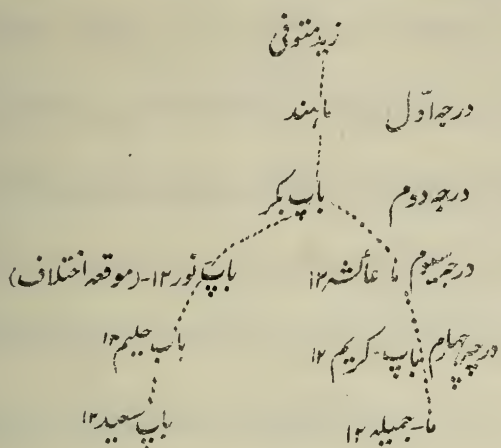 زید متوفی
درجہ اوّل ما ہند
درجہ دوم باپ بکر
درجہ سیوم ما عائشہ ۱۲ باپ نور ۱۲-(موقعہ اختلاف)
درجہ چہارم باپ-کریم ۱۲ باپ حلیم ۱۲
ما-جمیلہ ۱۲ باپ سعید ۱۲